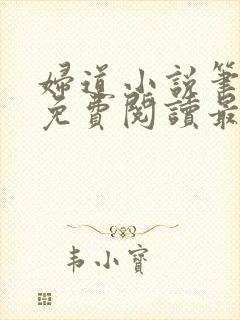 婦道小說筆
免費閱讀最
韦小寶